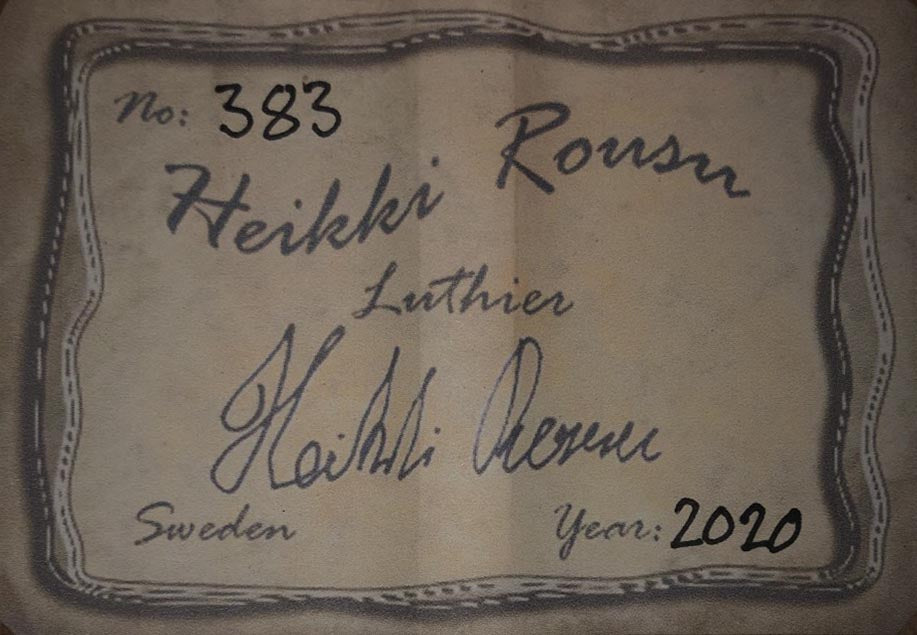 No: 383
Heikki Rousu
Luthier
Heikki Rousu
Sweden Year: 2020